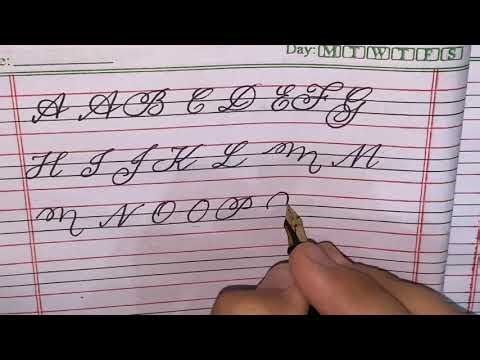 Day: M T W T F S
e:
A A B C D E F G
H I J K L M M
M N O O P